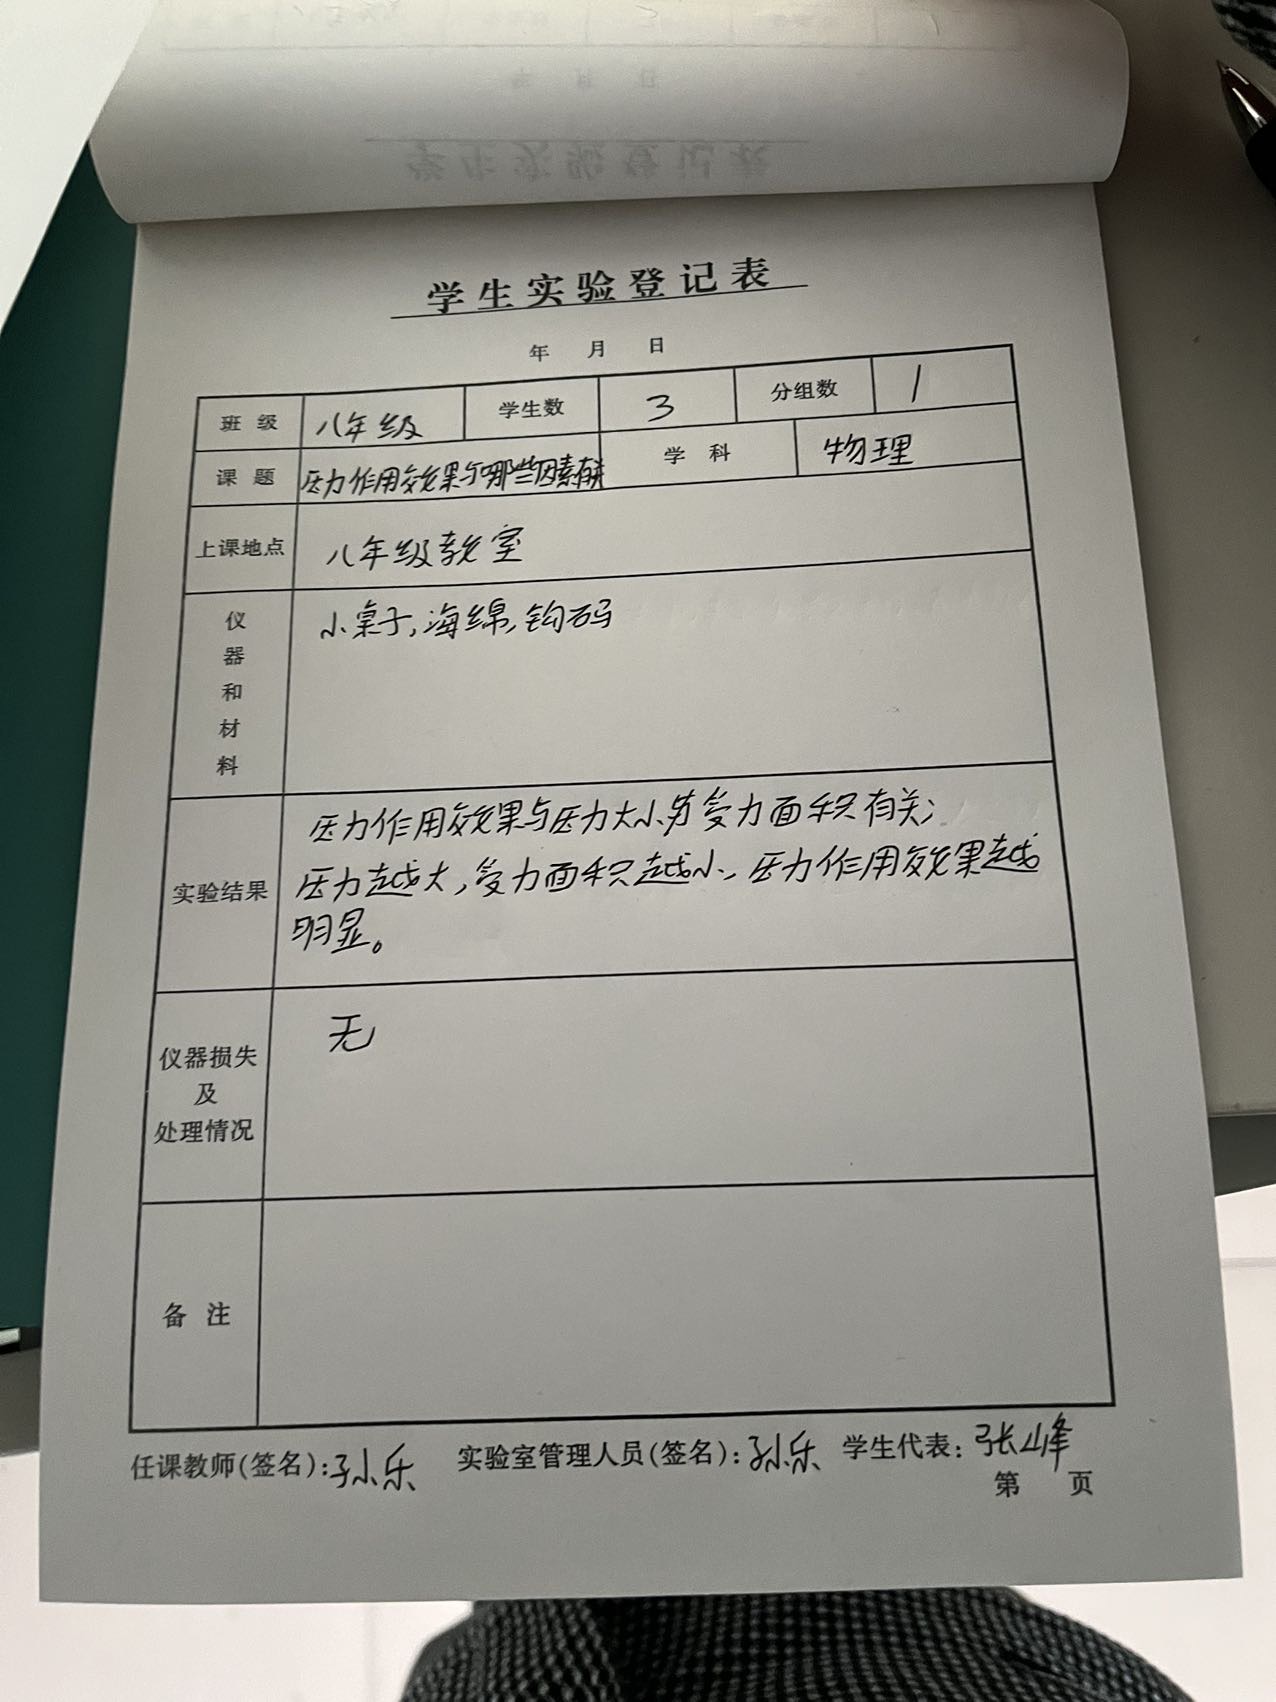 学生实验登记表
年 月 日
班级 八年级 学生数 3 分组数 1
课题 压力作用效果与哪些因素有关 学科 物理
上课地点 八年级教室
仪器和材料 小桌子,海绵,钩码
压力作用效果与压力大小与受力面积有关;
实验结果 压力越大,受力面积越小,压力作用效果越
明显。
仪器损失 无
及
处理情况
备注
任课教师(签名):孙乐 实验室管理人员(签名):孙乐 学生代表:张峰
第 页